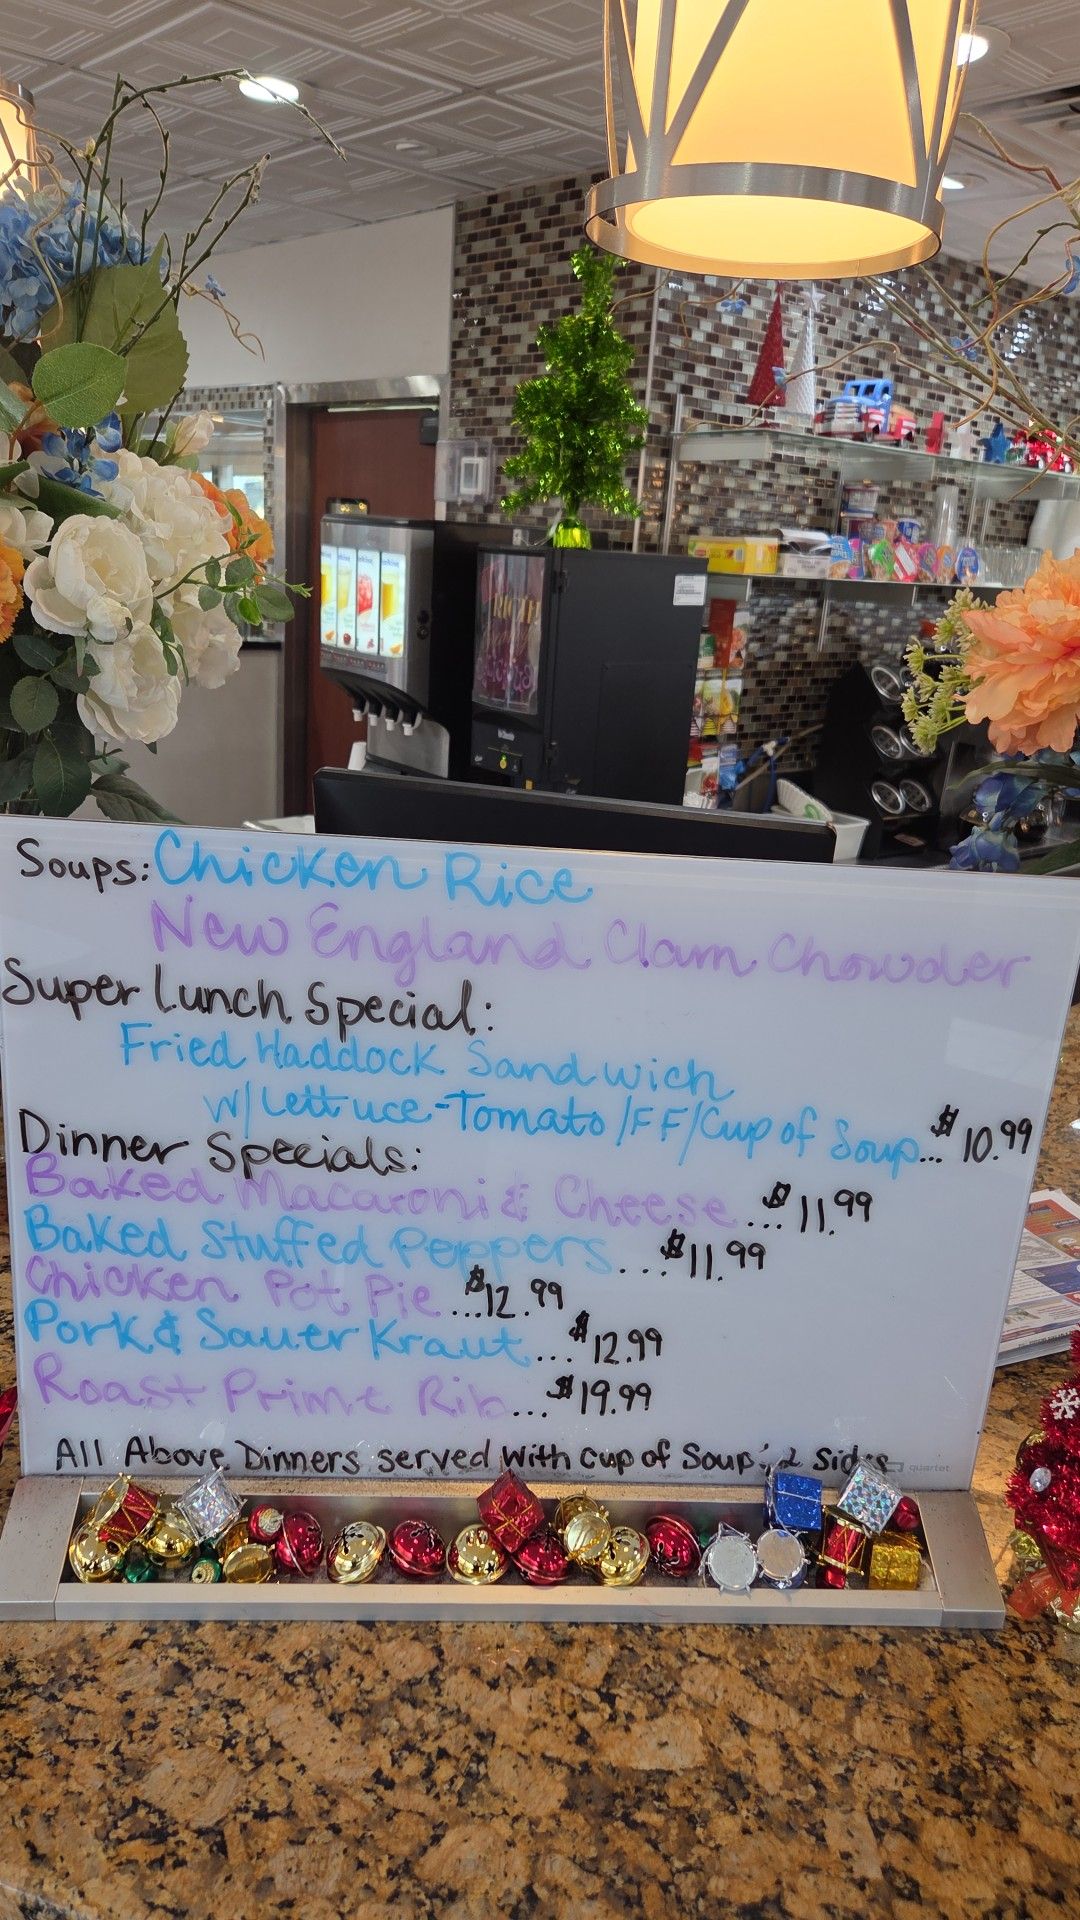 Soups: Chicken Rice
New England Clam Chowder
Super Lunch Special:
Fried Haddock Sandwich
w/Lettuce-Tomato/FF/Cup of Soup...$10.99
Dinner Specials:
Baked Macaroni & Cheese...$11.99
Baked Stuffed Peppers...$11.99
Chicken Pot Pie...$12.99
Pork & Sauer Kraut...$12.99
Roast Prime Rib...$19.99
All Above Dinners served with cup of Soup & 2 sides
quartet